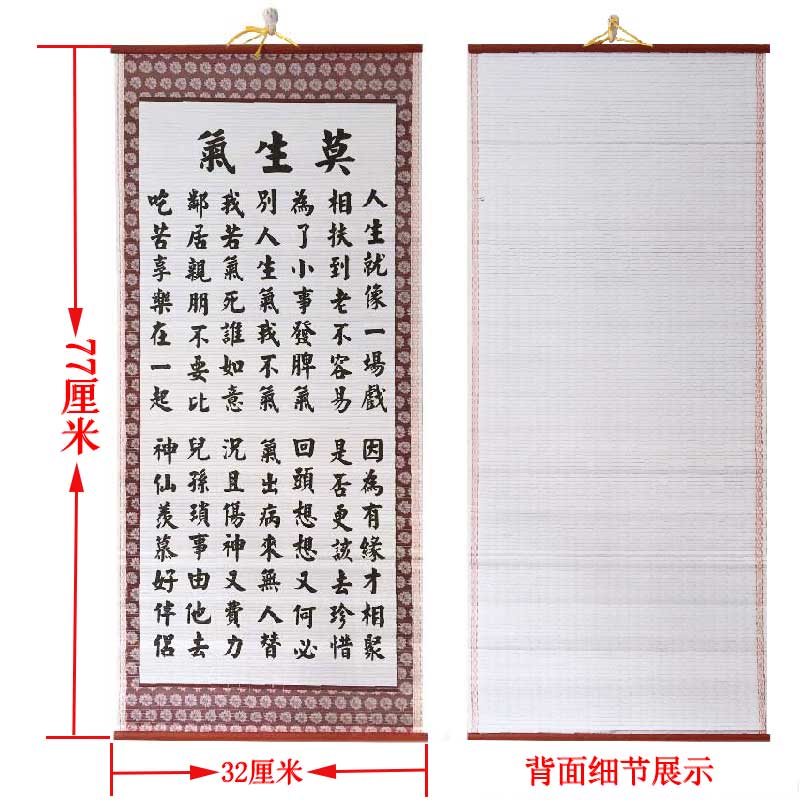 莫生氣
人生就像一場戲
因為有緣才相聚
相扶到老不容易
是否更該去珍惜
為了小事發脾氣
回頭想想又何必
別人生氣我不氣
氣出病來無人替
我若氣死誰如意
況且傷神又費力
鄰居親朋不要比
兒孫瑣事由他去
吃苦享樂在一起
神仙羨慕好伴侶
77厘米
32厘米
背面细节展示